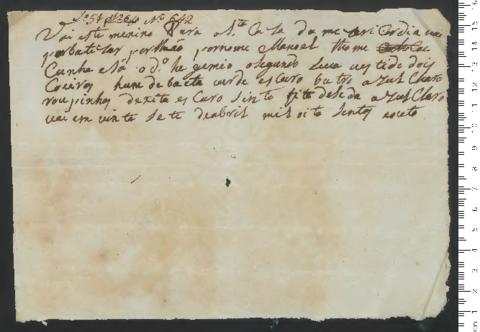 Nº 642
Vai este menino Para a Sta Caza da mezaricordia vai
por batizar por nome Manoel thome
Cunha esta o dº he gemio o segundo Leva vestido dois
Coeiros hum de baeta verde escuro outro azul Claro
roupinhas de xita es Curo sinto fita de seda azul Claro
vai em vinte sete de abril mil oito sentos e oito